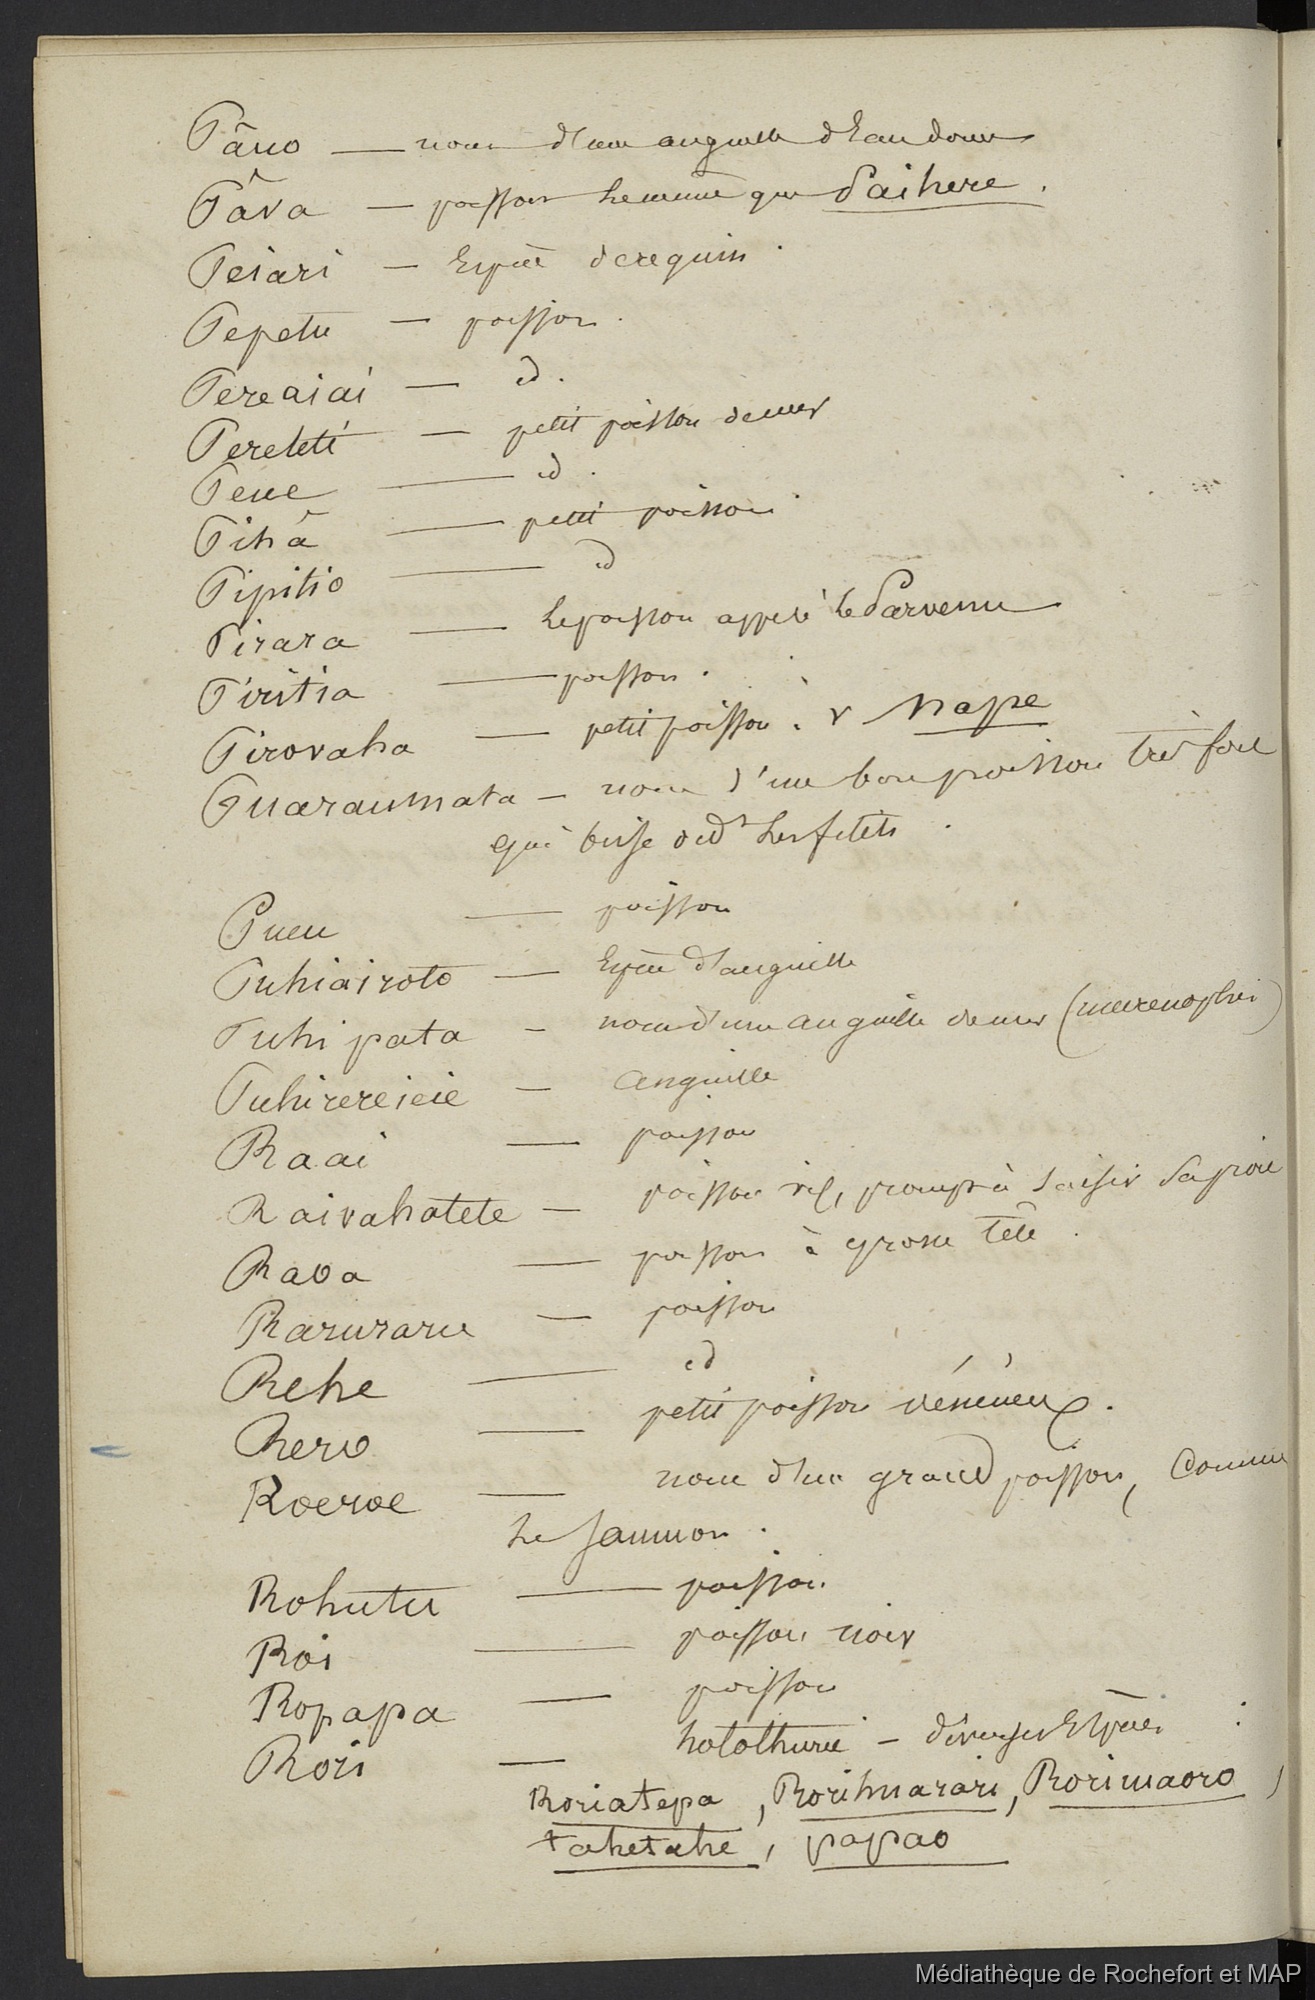 Pâuo — nom d'une anguille d'eau douce
Pâva — poisson le même que Paihere.
Peiari — Espèce de requin.
Pepetu — poisson.
Pereaiai — id.
Pereteti — petit poisson de mer
Peue — id.
Pihâ — petit poisson.
Pipitio — id
Pirara — le poisson appelé le Parvenu
Piritia — poisson.
Pirovaha — petit poisson. v Nape
Puaraumata — nom d'un bon poisson très fort
qui brise les filets.
Pueu — poisson
Puhiairoto — Espèce d'anguille
Puhi pata — nom d'une anguille de mer (murenophis)
Puhirereieie — Anguille
Raai — poisson
Raivahatete — poisson vif, prompt à saisir sa proie
Raoa — poisson à grosse tête.
Raruraru — poisson
Rehe — id
Rero — petit poisson vénéneux.
Roeroe — nom d'un grand poisson, comme
le saumon.
Rohutu — poisson.
Roi — poisson noir
Ropapa — poisson
Rori — holothurie — diverses Espèces :
Roriatepa, Rorihuarari, Rorimaoro,
tahetahe, papao
Médiathèque de Rochefort et MAP